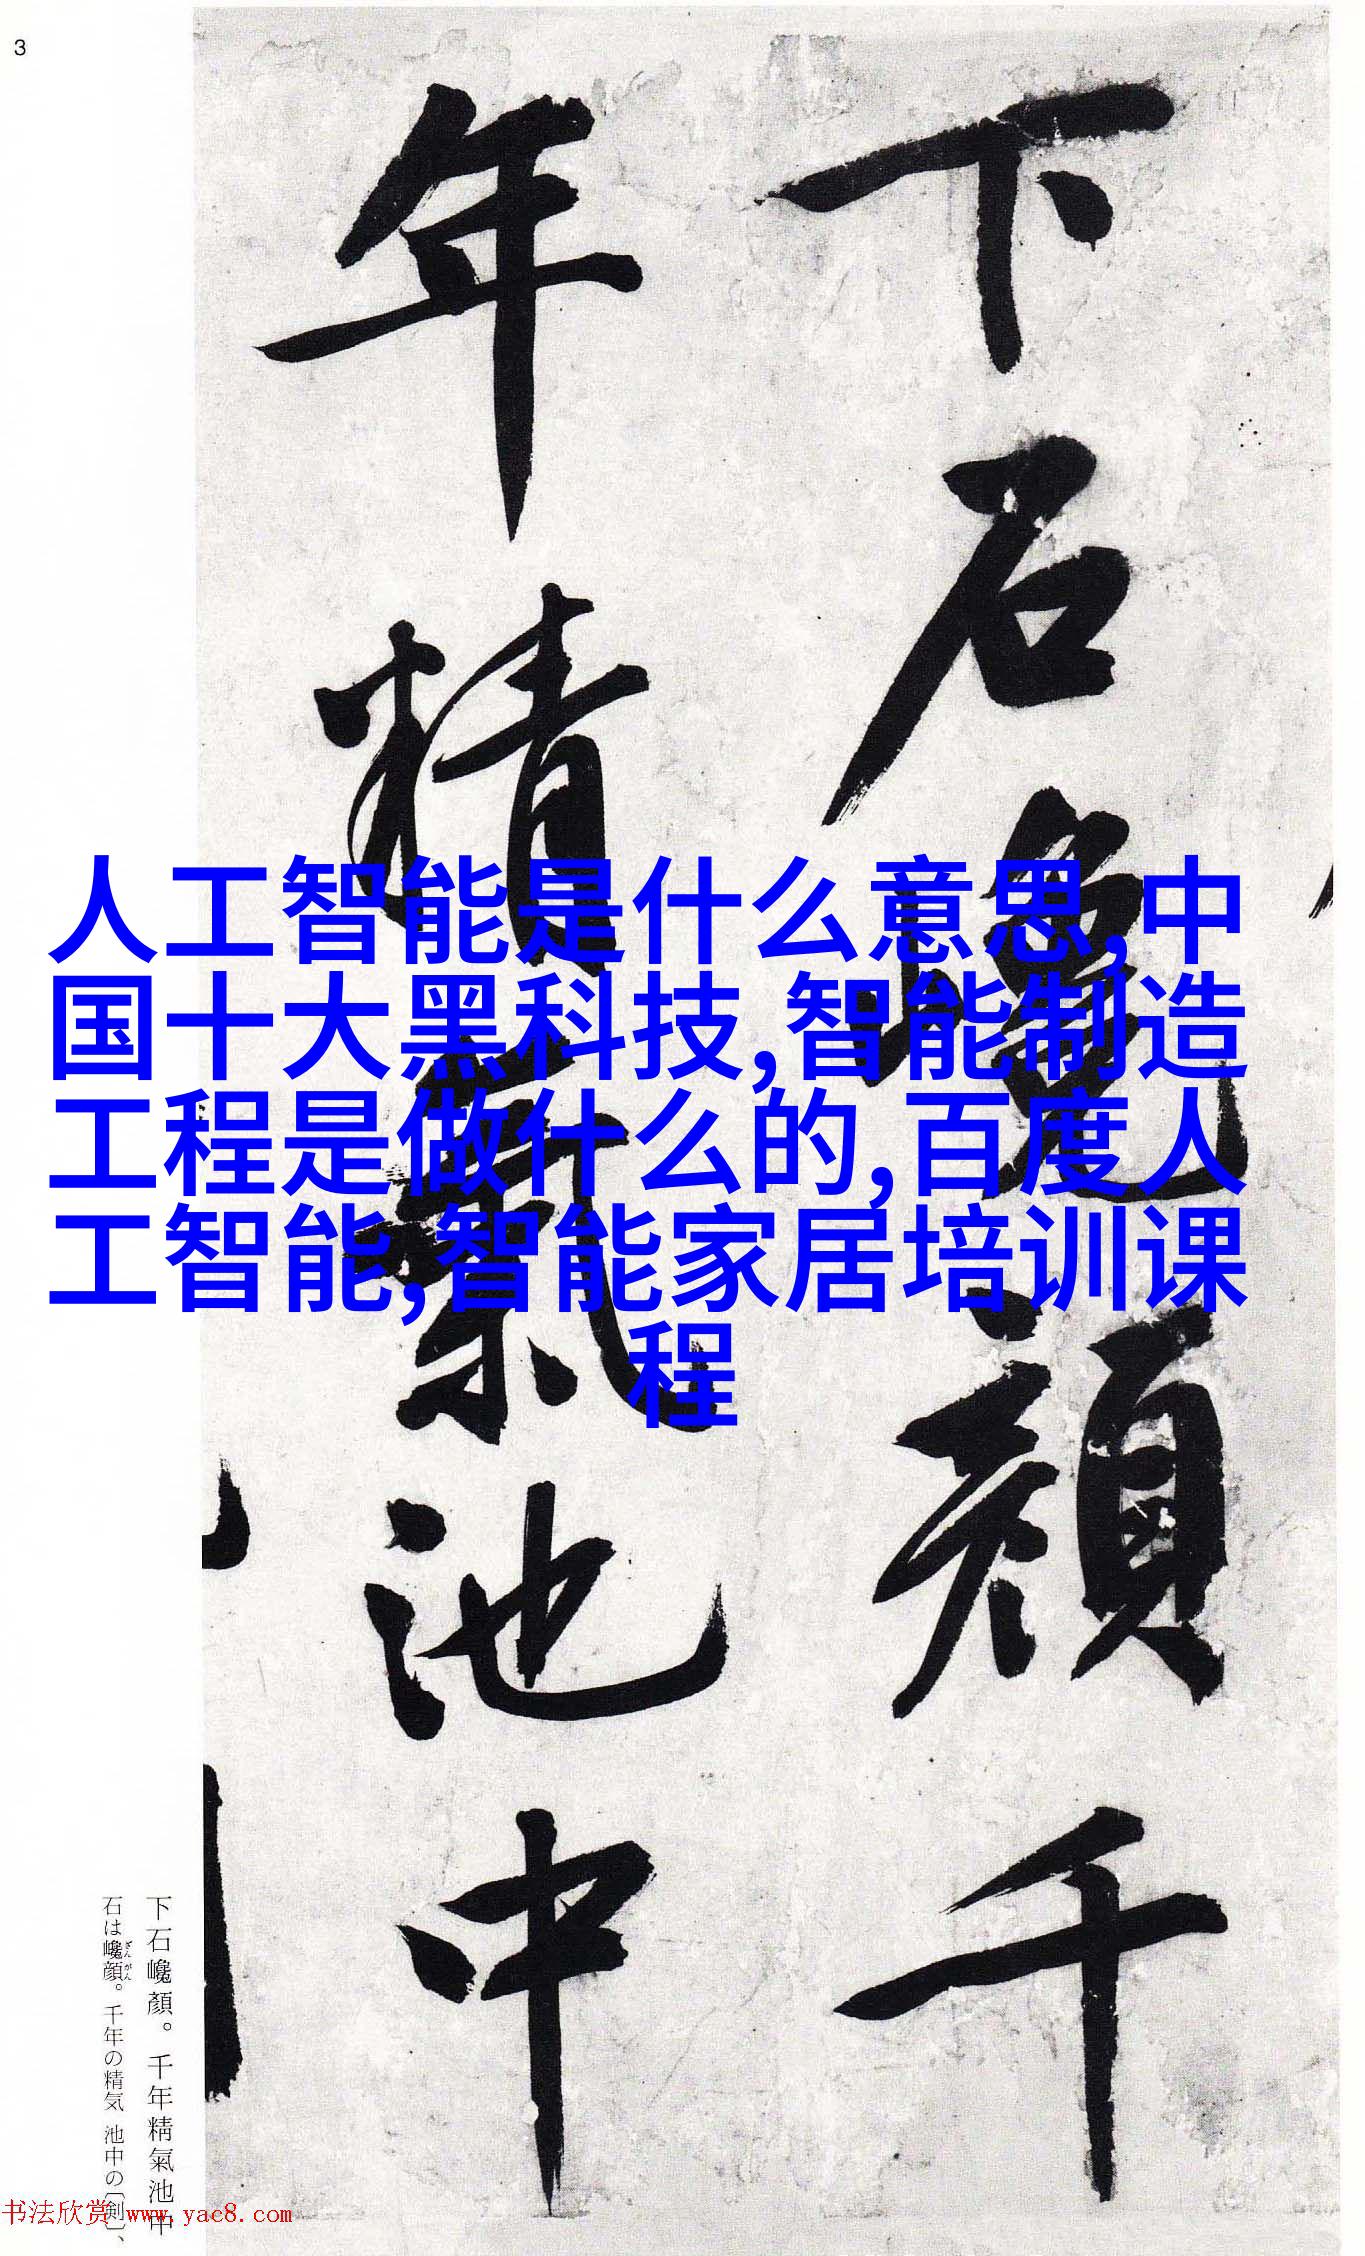 3
下石巉顔千
年精氣池中
人工智能是什么意思,中
国十大黑科技,智能制造
工程是做什么的,百度人
工智能,智能家居培训课
程
下石巉顏。千年精氣池中
石は巉顔。千年の精気 池中の〔剣〕、
ざんがん
书法欣赏 www.yac8.com